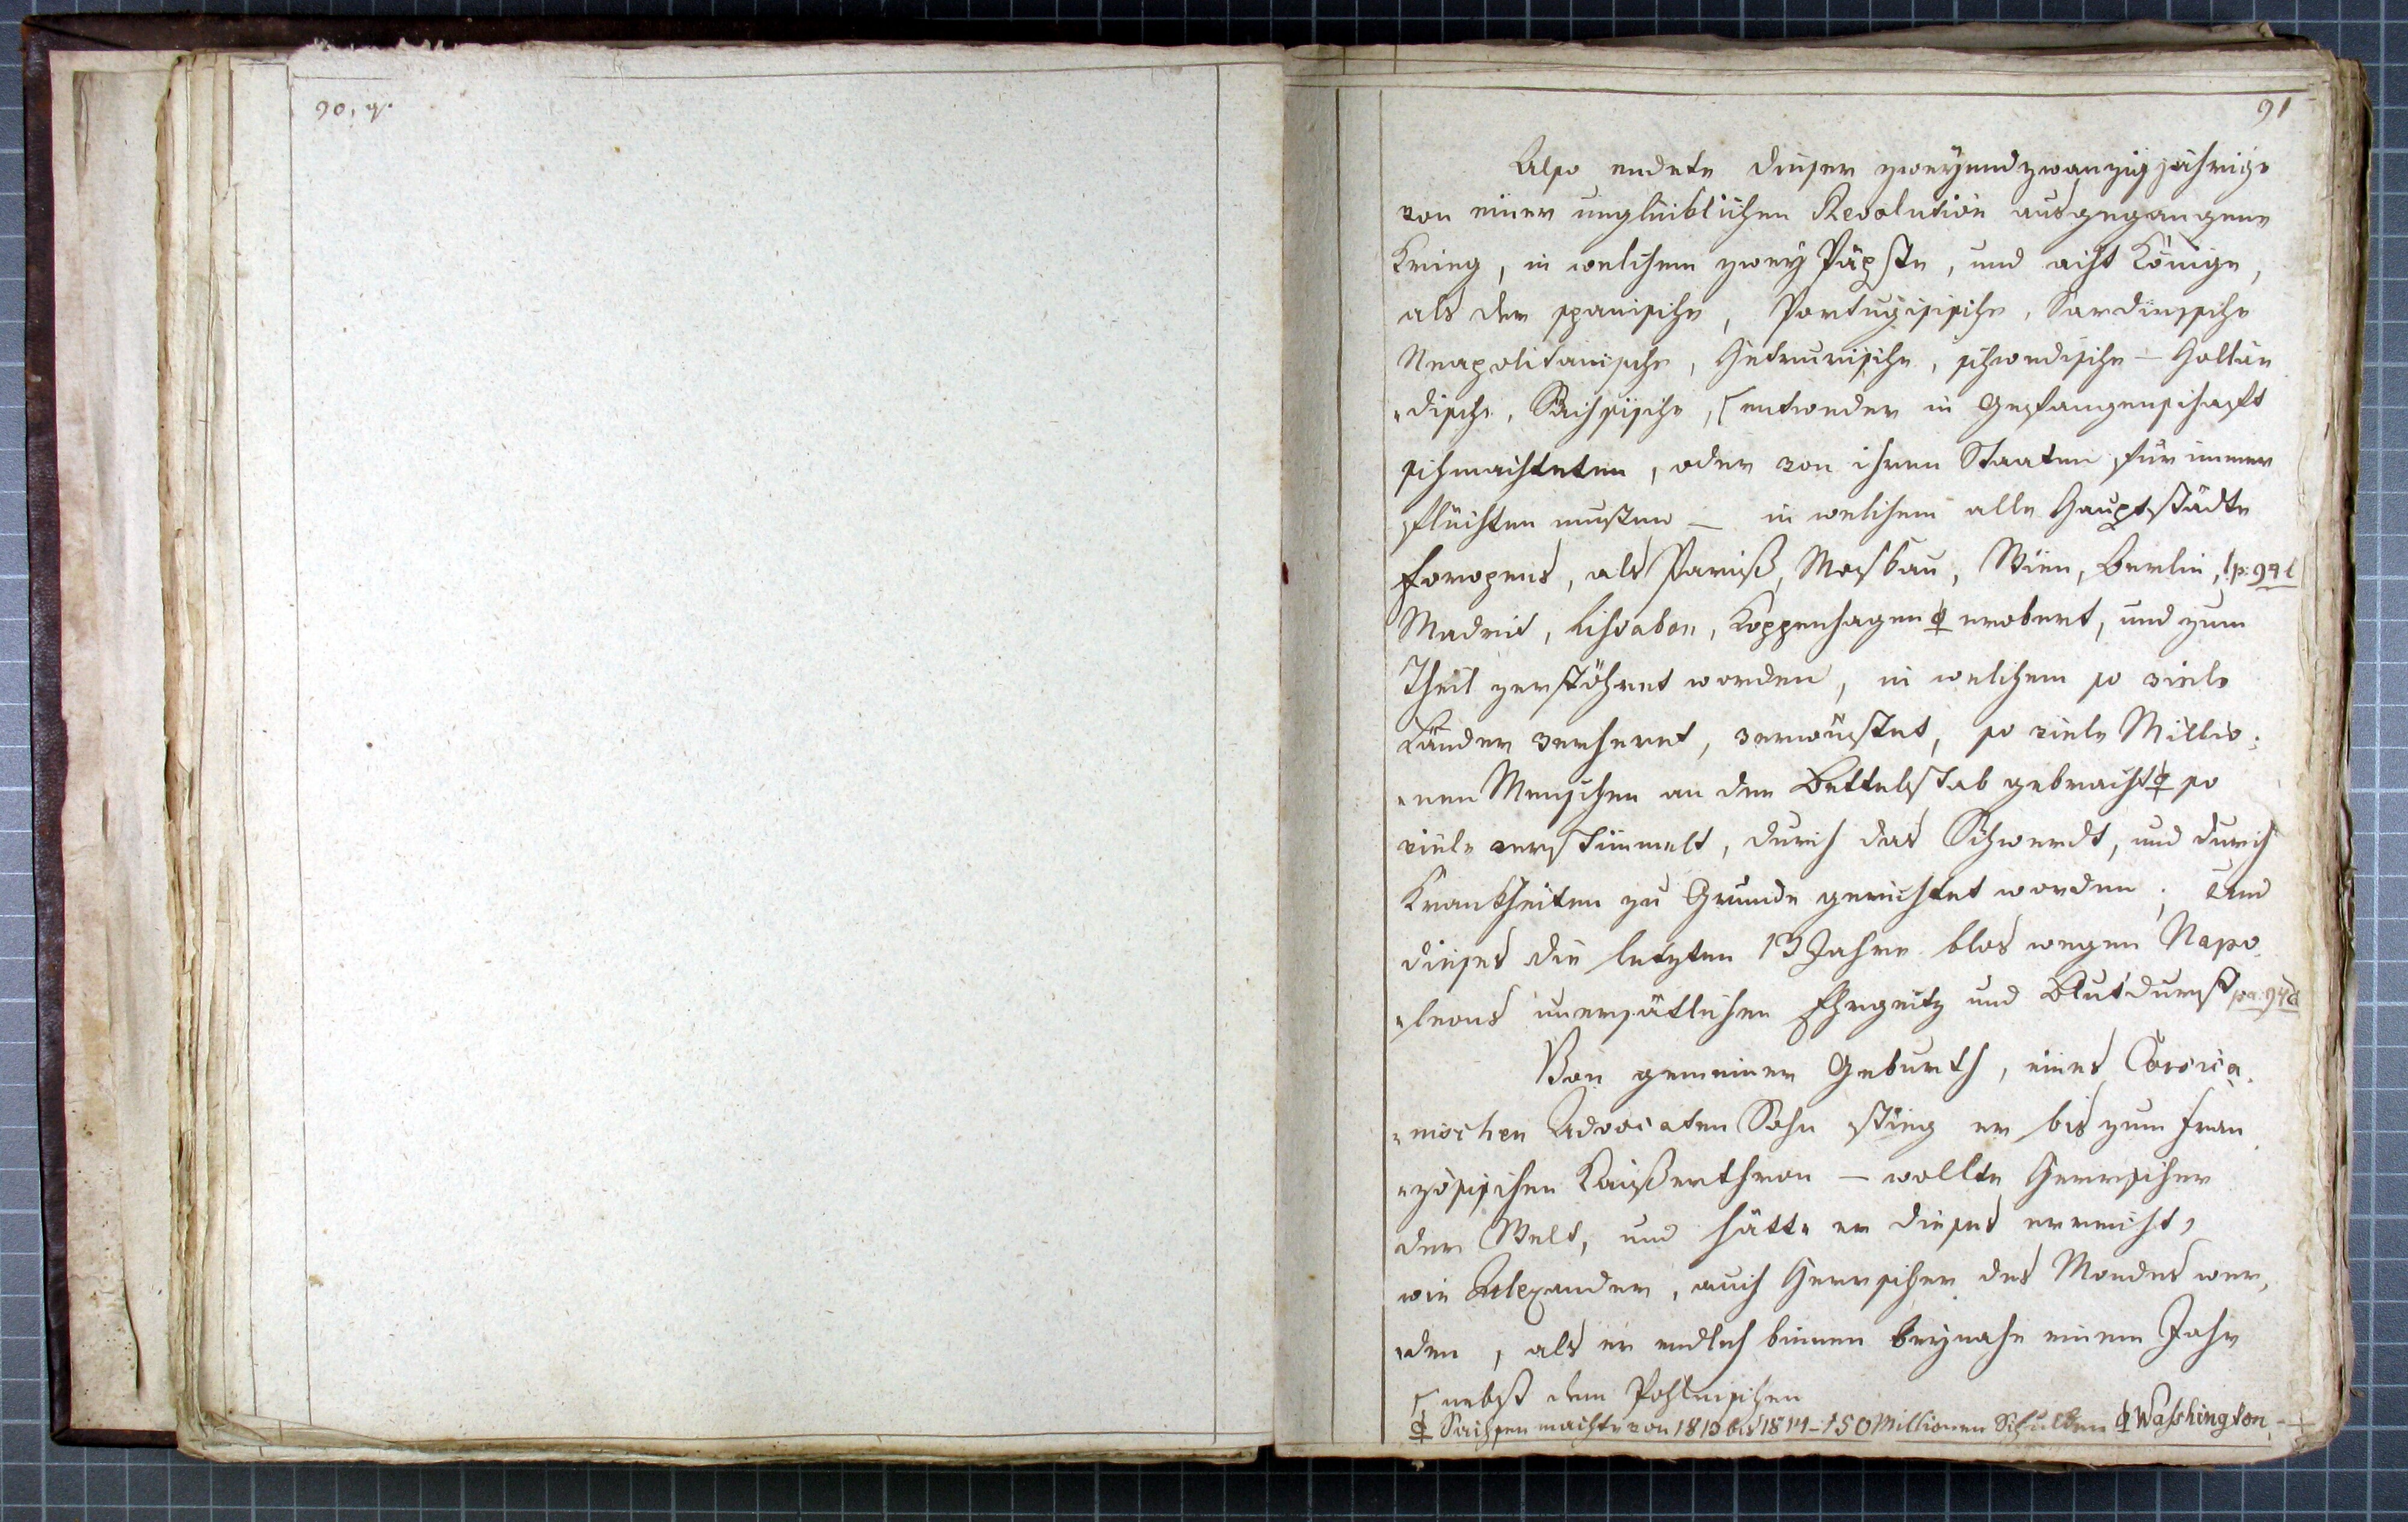 90. q.
91
Also endete dieser zweyundzwanzig jährige
von einer unglücklichen Revolution ausgegangene
Krieg, in welchem zwey Päpste, und acht Könige,
als der spanische, Portugisische, Sardinische
Neapolitanische, Hetrurische, schwedische – Hollän
„dische, Sächsische, [entweder in Gefangenschaft
schmachteten, oder von ihren Staaten für immer
flüchten musten – in welchem alle Hauptstädte
Europens, als Pariß, Moskau, Wien, Berlin, p: 94 l
Madrid, Lissabon, Koppenhagen ϕ erobert, und zum
Theil zerstöhret worden, in welchem so viele
Länder verheret, verwüstet, so viele Millio„
„nen Menschen an den Bettelstab gebracht ϕ so
viele verstümmelt, durch das Schwerdt, und durch
Krankheiten zu Grunde gerichtet worden; und
dieses die letzten 13 Jahre blos wegen Napo„
„leons unersätlichen Ehrgeitz und Blutdurst pa: 94d
Von gemeiner Geburth, eines Corsica„
„nischen Advocaten Sohn stieg er bis zum fran„
„zösischen Kaißerthron – wollte Herrscher
der Welt, und hätte er dieses erreicht,
wie Alexander, auch Herrscher des Mondes wer„
„den, als er endlich binnen beynahe einem Jahr
[ nebst dem Pohlnischen
ϕ Sachsen machte von 1813 bis 1814 – 150 Millionen Schulden ϕ Washington